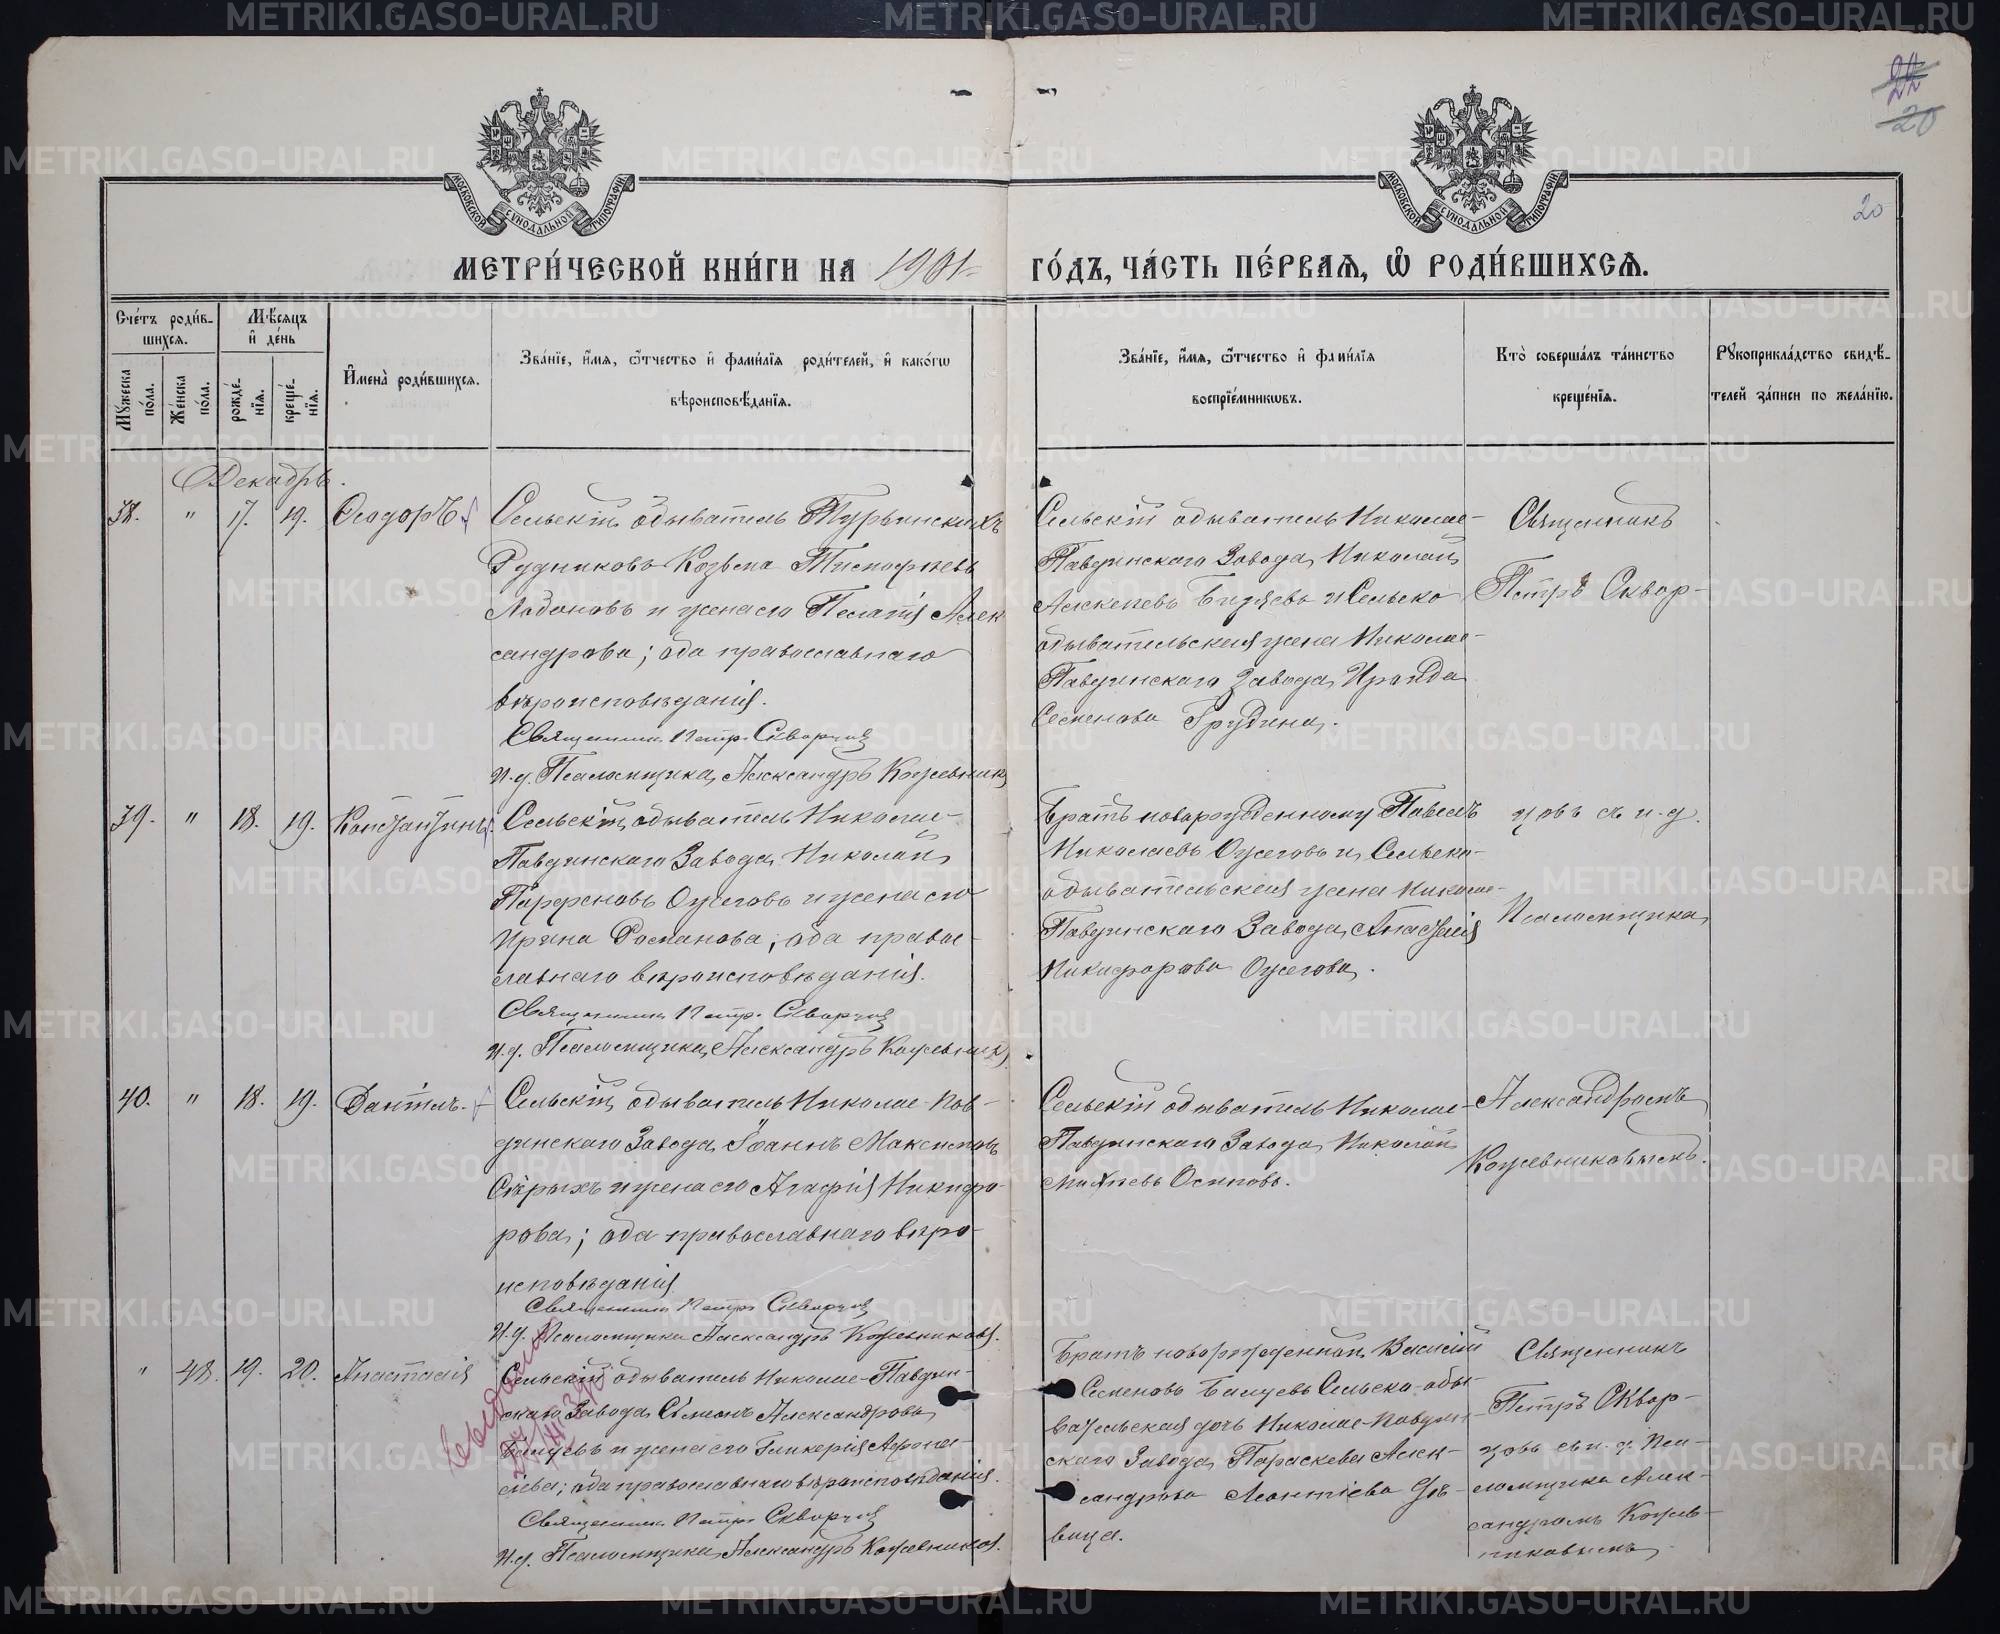 22
20
20
МОСКОВСКОЙ СѴНОДАЛЬНОЙ ТИПОГРАФІИ
МОСКОВСКОЙ СѴНОДАЛЬНОЙ ТИПОГРАФІИ
МЕТРИ́ЧЕСКОЙ КНИ́ГИ НА 1901 ГО́ДЪ, ЧА́СТЬ ПЕ́РВАЯ, Ѡ҆ РОДИ́ВШИХСЯ.
Сче́тъ роди́в-
шихся.
Мꙋ́жеска по́ла.
Же́нска по́ла.
Мѣ́сяцъ и҆ де́нь
рожде́-нїя.
креще́-нїя.
И҆мена̀ роди́вшихся.
Зва́нїе, и҆́мя, ѻ҆́тчество и҆ фами́лїя роди́телей, и҆ како́гѡ
вѣроисповѣ́данїя.
Зва́нїе, и҆́мя, ѻ҆́тчество и҆ фами́лїя
воспрїе́мникѡвъ.
Кто̀ соверша́лъ та́инство
креще́нїя.
Рꙋкоприкла́дство свидѣ́-
телей за́писи по жела́нїю.
Декабрь.
38. " 17. 19. Ѳеодоръ
Сельскій обыватель Турьинскихъ
Рудниковъ Козьма Тимофеевъ
Лодоновъ и жена его Пелагія Алек
сандрова; оба православнаго
вѣроисповѣданія.
Священник Петр Скворцов
И.д. Псаломщика Александръ Кожевник
Сельскій обыватель Николае-
Павдинскаго Завода Николай
Алексеевъ Бизяевъ и Сельско
обывательская жена Николае-
Павдинскаго Завода Ираида
Семенова Грудина.
Священникъ
Петръ Сквор-
39. " 18. 19. Константинъ
Сельскій обыватель Николае-
Павдинскаго Завода Николай
Парфеновъ Ожеговъ и жена его
Ирина Романова; оба право-
славнаго вѣроисповѣданія.
Священник Петр Скворцов
И.д. Псаломщика Александръ Кожевник
Братъ новорожденному Павелъ
Николаевъ Ожеговъ и Сельско-
обывательская жена Николае-
Павдинскаго Завода Анастасія
Никифорова Ожегова.
цовъ съ и.д.
Псаломщика
40. " 18. 19. Даніилъ.
Сельскій обыватель Николае-Пав-
динскаго Завода Іоаннъ Максимовъ
Старыхъ и жена его Агафія Никифо-
рова; оба православнаго вѣро-
исповѣданія
Священник Петръ Скворцов
И.д. Псаломщика Александръ Кожевниковъ.
Сельскій обыватель Николае-
Павдинскаго Завода Николай
Михеевъ Осиповъ.
Александромъ
Кожевниковымъ.
" 48. 19. 20. Анастасія
Сельскій обыватель Николае-Павдин-
скаго Завода Сѵмеонъ Александровъ
Балуевъ и жена его Гликерія Афона-
сіева; оба православнаго вѣроисповѣданія.
Священник Петр Скворцов
И.д. Псаломщика Александръ Кожевников.
Братъ новорожденной Василій
Семеновъ Балуевъ Сельско-обы-
вательская дочь Николае-Павдин-
скаго Завода Параскева Алек-
сандрова Леонтіева дѣ-
вица.
Священникъ
Петръ Сквор-
цовъ съ и.д. Пса-
ломщика Алек-
сандромъ Кожев-
никовымъ.
METRIKI.GASO-URAL.RU